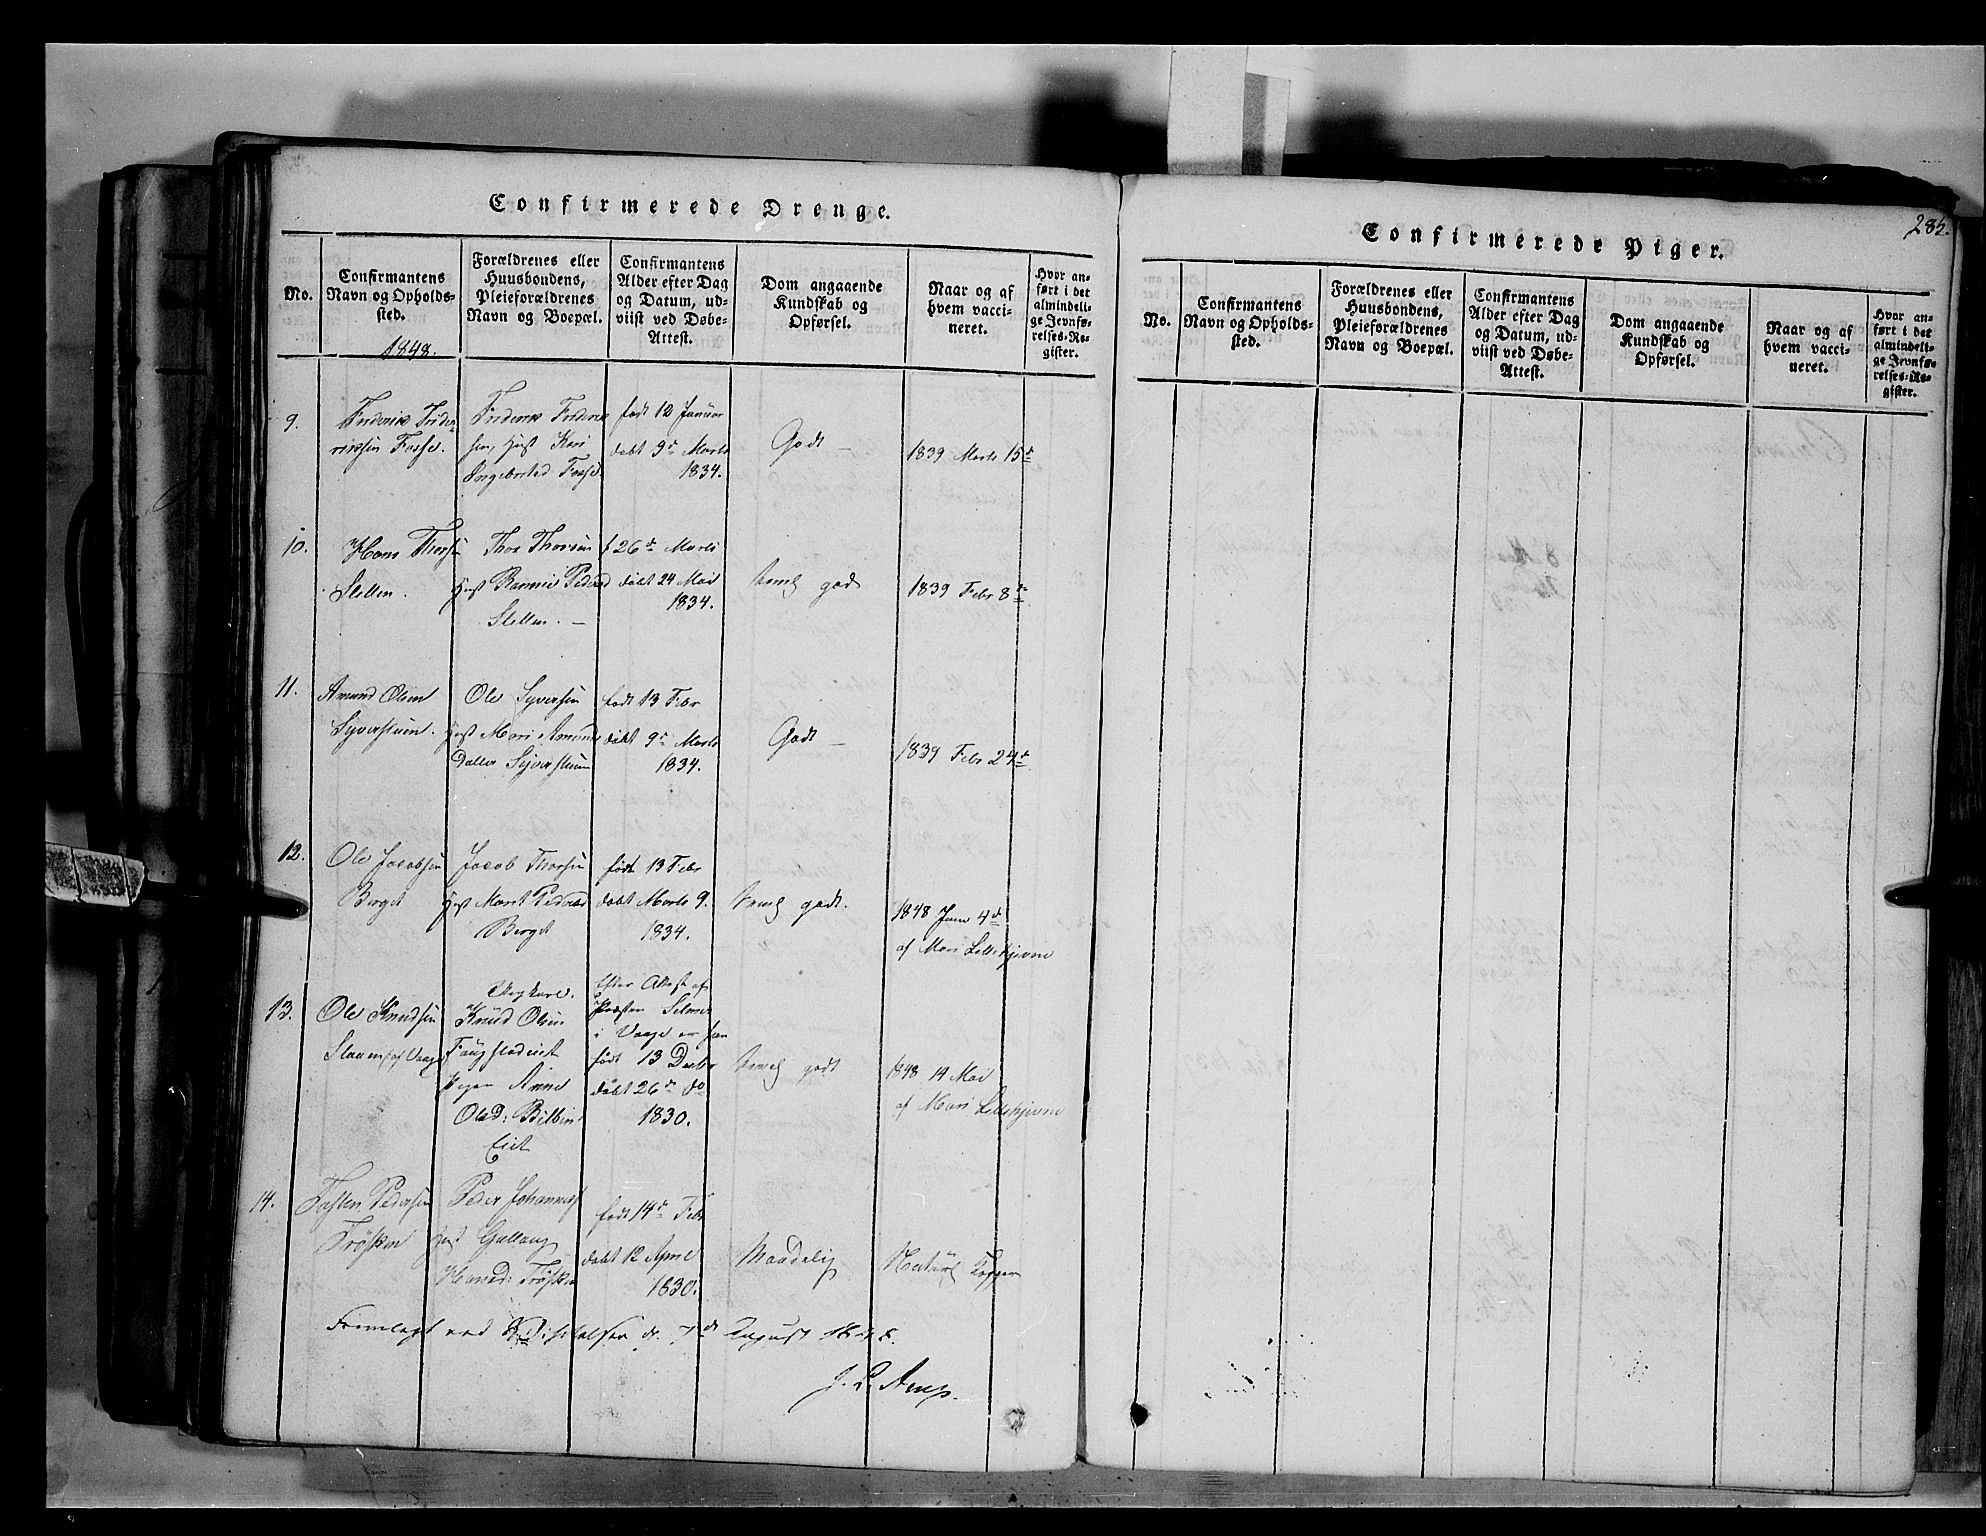 Confirmerede Drenge.
No.
Confirmantens
Navn og Opholds-
sted.
1848.
Forældrenes eller
Huusbondens,
Pleieforældrenes
Navn og Boepæl.
Confirmantens
Alder efter Dag
og Datum, ud-
viist ved Døbe-
Attest.
Dom angaaende
Kundskab og
Opførsel.
Naar og af
hvem vacci-
neret.
Hvor an-
ført i det
almindeli-
ge Jevnfø-
relses-Re-
gister.
9.
Frederik Frider-
riksen Fosse.
Frederik Frideriks
sen, Hust Kari
Ingebretsd Fosse
født 12 Januar
døbt 9de Marts
1834.
Godt —
1839 Marts 15de
10.
Hans Thorsen
Sletten.
Thor Thorsen
Hust Rannei Pedersd
Sletten. —
f 26de Marts
døbt 24 Mai
1834.
temlig godt
1839 Febr 8de
11.
Amund Olsen
Syversteen.
Ole Syversen
Hust Mari Amunds
datter Syversteen
født 13 Febr
døbt 9de Marts
1834.
Godt —
1839 Febr 24de
12.
Ole Jacobsen
Berget
Jacob Thorsen
Hust Marit Pedersd
Berget
født 13 Febr
døbt Marts 9.
1834.
temlig godt.
1848 Juni 4de
af Mari Lillehjevne
13.
Ole Knudsen
Slaaen af Vaage
Ungkarl.
Knud Olsen
Faugstadeiet
Pigen Anne
Olsd: Bilben
Eiet
Efter Attest af
Præsten Selmer
i Vaage er han
født 13 Decbr
døbt 26de do
1830.
temlig godt
1848 14 Mai
af Mari Lillehjevne
14.
Tosten Pedersen
Trøsken
Peder Johannes
Hust
Hansd: Trøsken
født 14de Febr
døbt 12 April
1830.
Maadelig
Naturl Kopper
Fremlagt ved Visitatsen d. 7de August 1848.
J. L. Arup.
Confirmerede Piger.
285.
No.
Confirmantens
Navn og Opholds-
sted.
Forældrenes eller
Huusbondens,
Pleieforældrenes
Navn og Boepæl.
Confirmantens
Alder efter Dag
og Datum, ud-
viist ved Døbe-
Attest.
Dom angaaende
Kundskab og
Opførsel.
Naar og af
hvem vacci-
neret.
Hvor an-
ført i det
almindeli-
ge Jevnfø-
relses-Re-
gister.